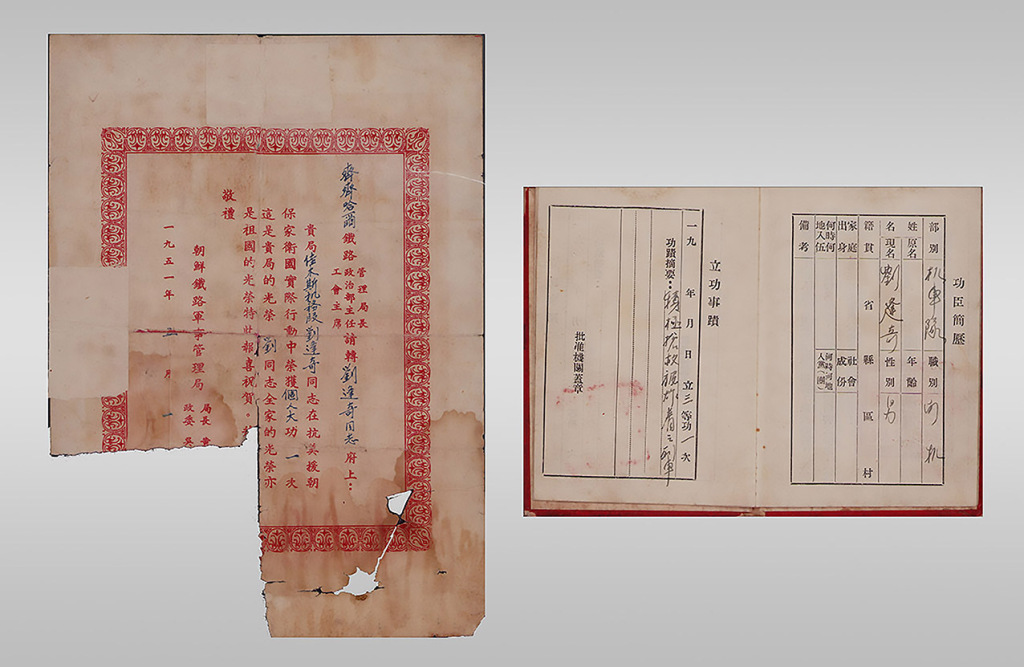 齊齊哈爾鐵路管理局長
政治部主任
工會主席
請轉劉逢奇同志府上：
貴局佳木斯机務段劉逢奇同志在抗美援朝
保家衛國實際行動中榮獲個人大功一次
這是貴局的光榮劉同志全家的光榮亦
是祖國的光榮特此報喜祝賀。
敬禮
朝鮮鐵路軍事管理局
局長
政委
一九五一年五月一
功臣簡歷
部別 机車隊 職別 司机
姓名 原名 現名 劉逢奇 年齡 性別 男
證貫 省 縣 區 村
家庭出身 社會成份
何時何地入伍 何時何地入黨（團）
備考
立功事蹟
一九 年 月 日 立三等功一次
功蹟摘要：積極搶救被炸着
批准機關蓋章